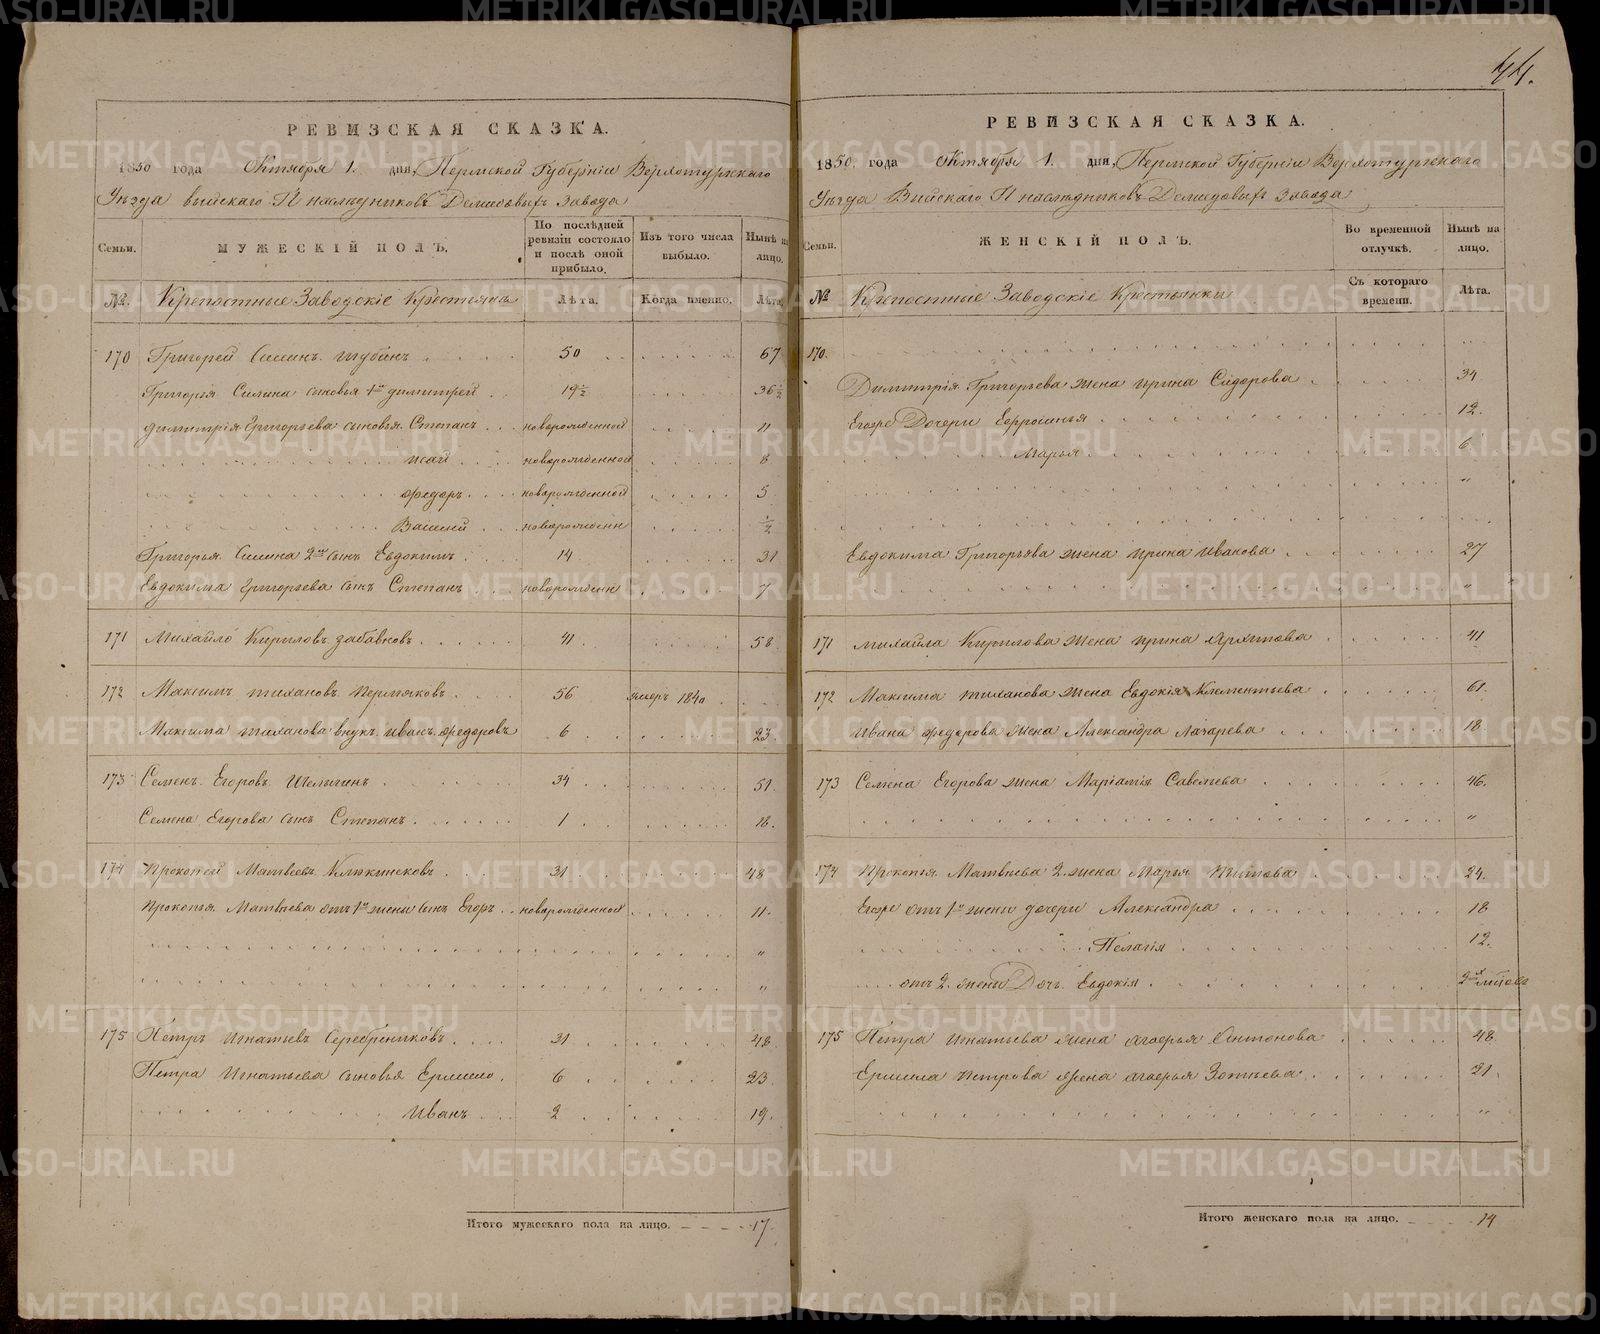 44.
РЕВИЗСКАЯ СКАЗКА.
1850 года Октября 1. дня, Пермской Губерніи Верхотурскаго
Уѣзда Выйскаго Гг наслѣдниковъ Демидовыхъ завода
Семьи. МУЖЕСКІЙ ПОЛЪ. По послѣдней ревизіи состояло и послѣ оной прибыло. Изъ того числа выбыло. Нынѣ на лицо.
№. Крепостные Заводскіе Крестьяна Лѣта. Когда именно. Лѣта
170 Григорей Силинъ Шубинъ 50 67
Григорья Силина сыновья 1й Димитрей 19½ 36½
Димитрія Григорьева сыновья Степанъ новорожденной 11
Исай новорожденной 8
Федоръ новорожденной 5
Василий новорожденн ½
Григорья Силина 2й сынъ Евдокимъ 14 31
Евдокима Григорьева сынъ Степанъ новорожденн 7
171 Михайло Кириловъ Забавновъ 41 58
172 Максимъ Тихановъ Пермяковъ 56 умеръ 1840
Максима Тиханова внукъ Иванъ Федоровъ 6 23
173 Семенъ Егоровъ Шелыгинъ 34 51
Семена Егорова сынъ Степанъ 1 18
174 Прокопей Матвеевъ 31 48
Прокопья Матвеева отъ 1й жены сынъ Егоръ новорожденной 11
175 Петръ Игнатьевъ Серебрениковъ 31 48
Петра Игнатьева сыновья Ермило 6 23
Иванъ 2 19
Итого мужескаго пола на лицо. 17
РЕВИЗСКАЯ СКАЗКА.
1850 года Октября 1. дня, Пермской Губерніи Верхотурскаго
Уѣзда Выйскаго Гг наслѣдниковъ Демидовыхъ завода
Семьи. ЖЕНСКІЙ ПОЛЪ. Во временной отлучкѣ. Нынѣ на лицо.
№ Крепостные Заводскіе Крестьянки Съ котораго времени. Лѣта.
170.
Димитрія Григорьева жена Ирина Сидорова 34
Егоже Дочери Ефросинья 12
Марья 6
Евдокима Григорьева жена Ирина Иванова 27
171 Михайла Кирилова жена Ирина Архипова 41
172 Максима Тиханова жена Евдокія Клементьева 61
Ивана Федорова жена Александра Лазарева 18
173 Семена Егорова жена Маріамія Савельева 46
174 Прокопья Матвеева 2 жена Марья Титова 24
Егоже отъ 1й жены дочери Александра 18
Пелагія 12
отъ 2 жены Дочь Евдокія
175 Петра Игнатьева жена Агафья Антонова 48
Ермила Петрова жена Агафья Зотѣева 21
Итого женскаго пола на лицо. 14
METRIKI.GASO-URAL.RU